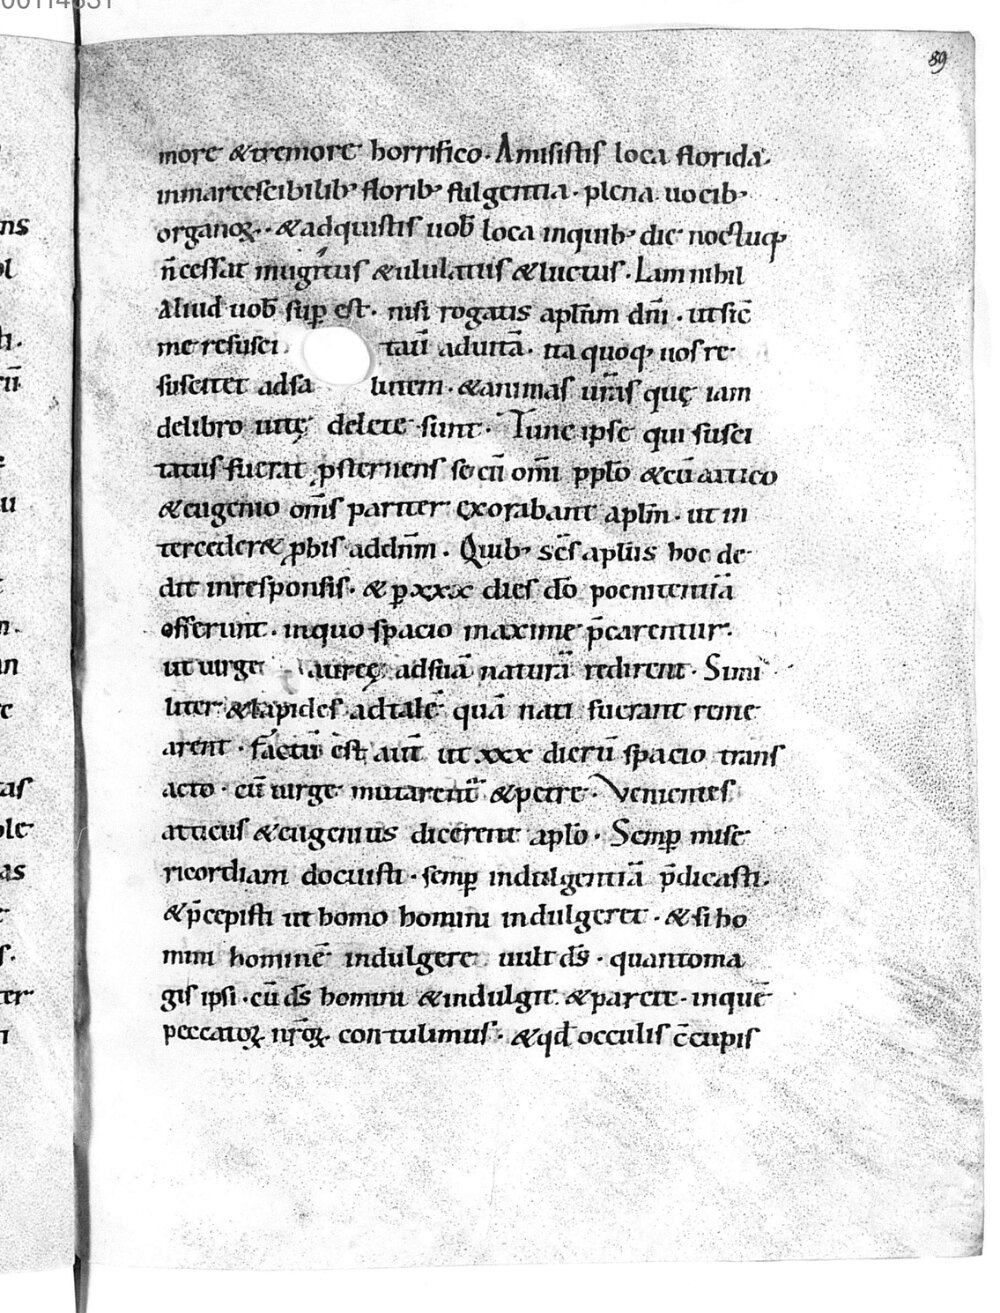 89
more & tremore horrifico· Amisistis loca florida·
inmarcescibilib; florib; fulgentia· plena uocib;
organoꝝ·· & adquisistis uob̄ loca inquib; die noctuqꝫ
n̄ cessat mugitus & ululatus & luctus· Iam nihil
aliud uob̄ suꝑ est· nisi rogatis aplūm dn̄i· ut sic̄
me resusci tauī ad uitā· ita quoqꝫ uos re
suscitet adsa lutem· & animas ur̄as quę iam
delibro uitę delete sunt· Tunc ipse qui susci
tatus fuerat ꝓsternens se cū om̄i pp̄lo & cū attico
& eugenio om̄s pariter exorabant aplm̄· ut in
tercederet ꝓ his ad dn̄m· Quib; sc̄s apl̄us hoc de
dit in responsis· & ꝑ xxx dies dō poenitentiā
offerunt· inquo spacio maxime p̄carentur·
ut uirgę aureę· adsuā naturā redirent· Simi
liter & lapides ad talē quā nati fuerant reme
arent· factū est aut̄ ut xxx dierū spacio trans
acto· cū uirge mutarent̄ & petre· Venientes
atticus & eugenius dicerent aplō· Semꝑ mise
ricordiam docuisti· semꝑ indulgentiā p̄dicasti·
& p̄cepisti ut homo homini indulgeret· & si ho
mini hominē indulgere uult ds̄· quantoma
gis ipsi· cū ds̄ homini & indulgit & parcit· inquē
peccatoꝝ nr̄oꝝ contulimus· & qđ occulis c̄cupis